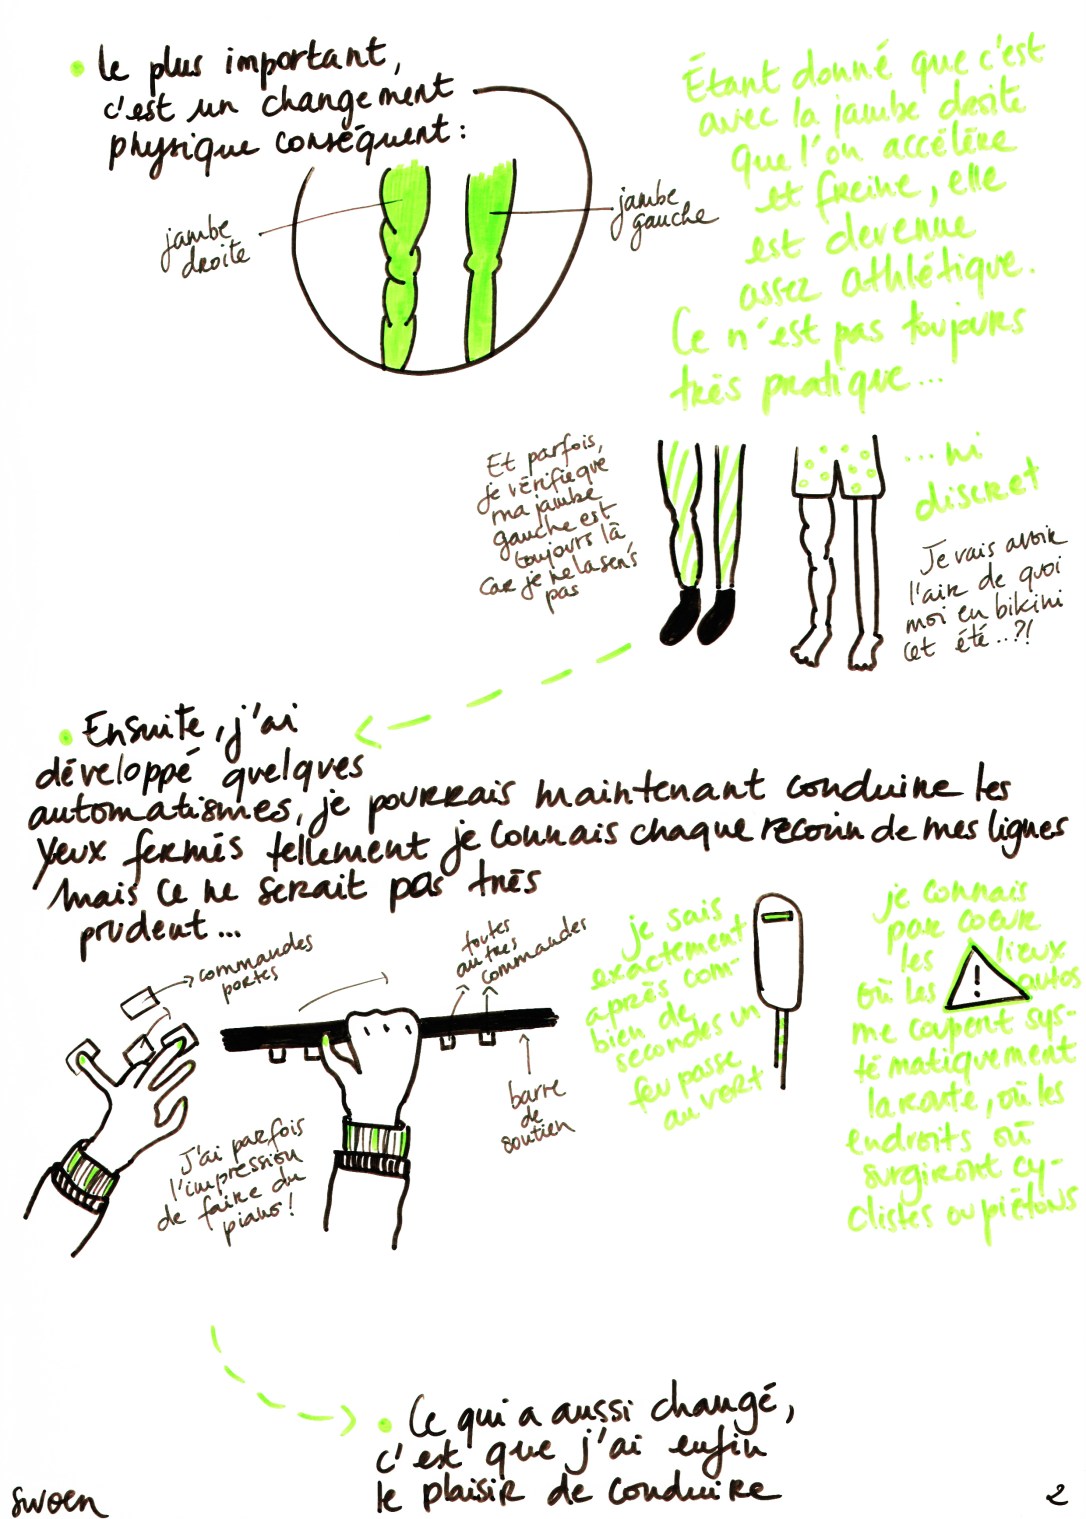 • le plus important,
c'est un changement
physique conséquent :
jambe
droite
jambe
gauche
Étant donné que c'est
avec la jambe droite
que l'on accélère
et freine, elle
est devenue
assez athlétique.
Ce n'est pas toujours
très pratique...
Et parfois,
je vérifie que
ma jambe
gauche est
toujours là
car je ne la sens
pas
...ni
discret
Je vais avoir
l'air de quoi
moi en bikini
cet été..?!
• Ensuite, j'ai
développé quelques
automatismes, je pourrais maintenant conduire les
yeux fermés tellement je connais chaque recoin de mes lignes
mais ce ne serait pas très
prudent...
commandes
portes
toutes
autres
commandes
barre
de
soutien
J'ai parfois
l'impression
de faire du
piano!
je sais
exactement
après com-
bien de
secondes un
feu passe
au vert
je connais
par coeur
les lieux
où les autos
!
me coupent sys-
tématiquement
la route, où les
endroits où
surgiront cy-
clistes ou piétons
• Ce qui a aussi changé,
c'est que j'ai enfin
le plaisir de conduire
swoen
2